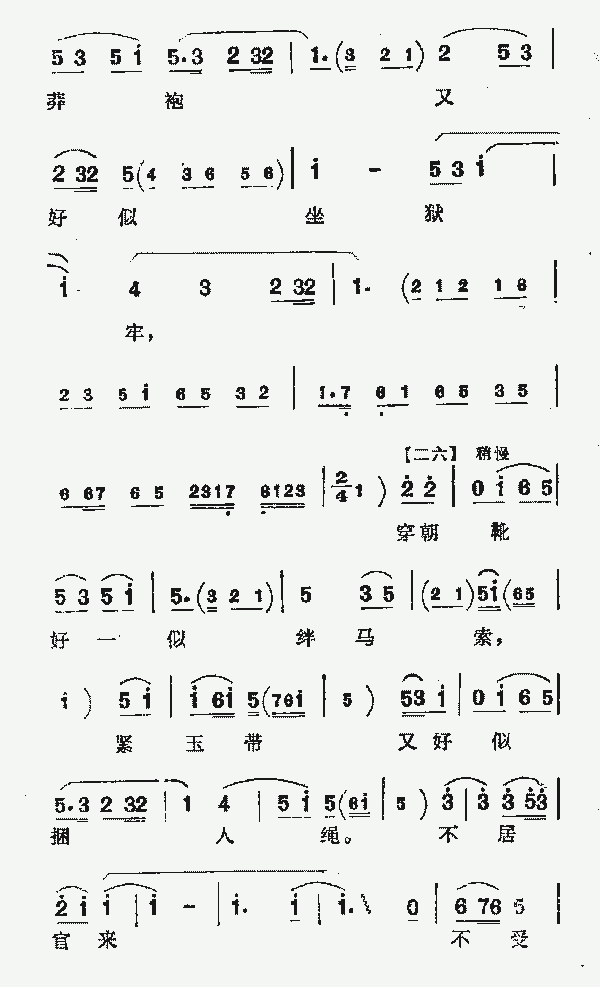 5 3 5 i 5.3 2 32 | 1.(3 2 1) 2 5 3 |
莽 袍 又
2 32 5(4 3 6 5 6) | i - 5 3 i |
好 似 坐 狱
i 4 3 2 32 | 1. (2 1 2 1 6 |
牢，
2 3 5 i 6 5 3 2 | 1.7 6 1 6 5 3 5 |
【二六】 稍慢
6 67 6 5 2317 6123 | 2/4 1 ) 2 2 | 0 i 6 5 |
穿 朝 靴
5 3 5 i | 5.(3 2 1) | 5 3 5 | (2 1)5i(65 |
好 一 似 绊 马 索，
i ) 5 i | i 6i 5(76i | 5 ) 53 i | 0 i 6 5 |
紧 玉 带 又 好 似
5.3 2 32 | 1 4 | 5 i 5(6i | 5 ) 3 | 3 3 53 |
捆 人 绳。 不 居
2 i i | i - | i. i | i. 0 | 6 76 5 |
官 来 不 受